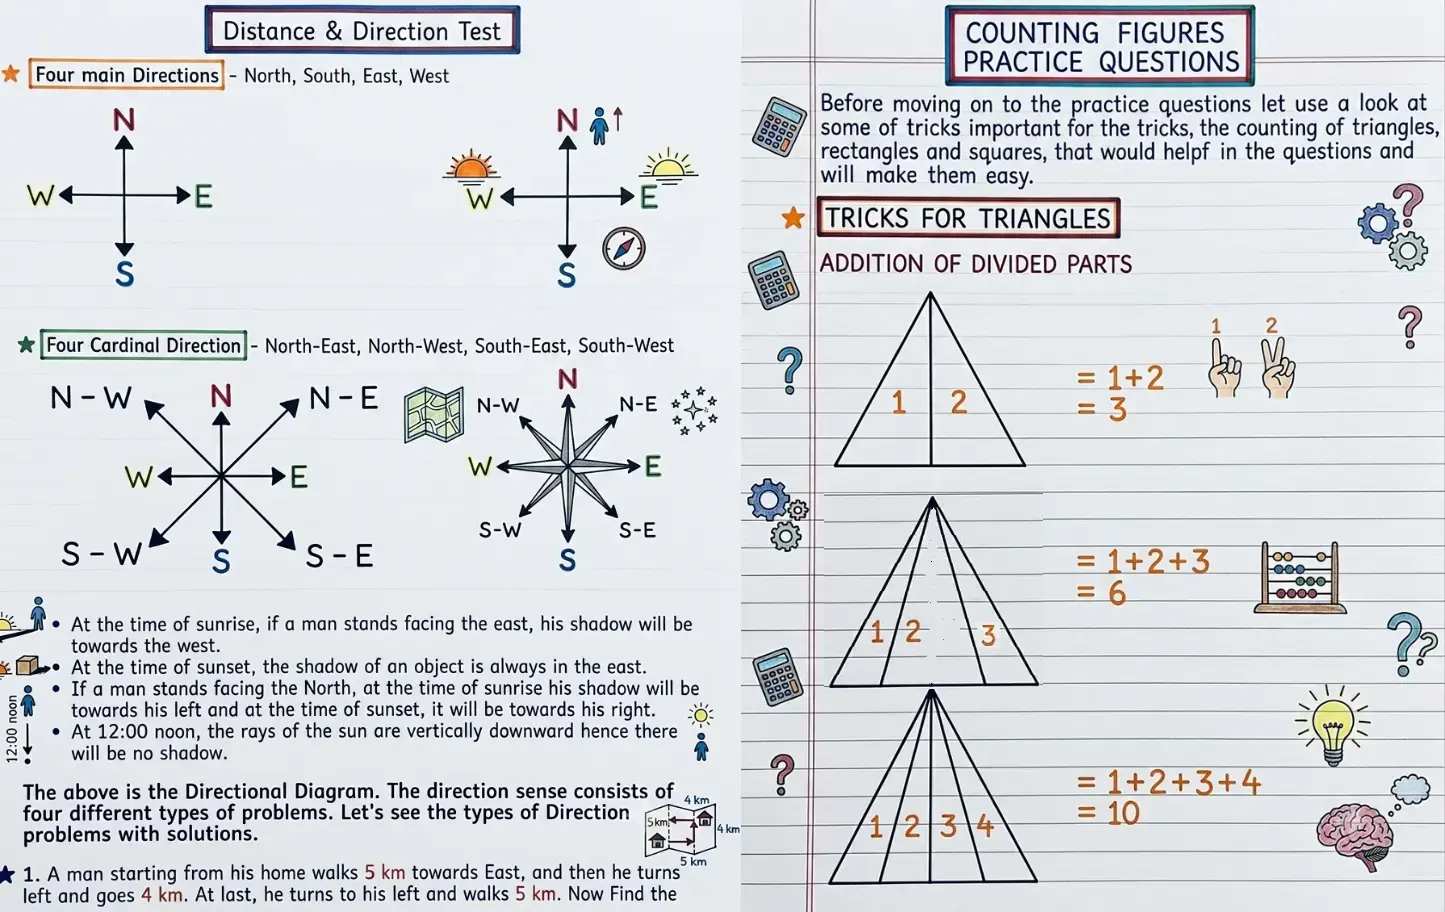 Distance & Direction Test
Four main Directions - North, South, East, West
N
W
E
S
N
W
E
S
Four Cardinal Direction - North-East, North-West, South-East, South-West
N - W
N
N - E
W
E
S - W
S
S - E
N
N-W
N-E
W
E
S-W
S-E
S
At the time of sunrise, if a man stands facing the east, his shadow will be
towards the west.
At the time of sunset, the shadow of an object is always in the east.
If a man stands facing the North, at the time of sunrise his shadow will be
towards his left and at the time of sunset, it will be towards his right.
At 12:00 noon, the rays of the sun are vertically downward hence there
will be no shadow.
12:00 noon
The above is the Directional Diagram. The direction sense consists of
four different types of problems. Let's see the types of Direction
problems with solutions.
4 km
5km
4 km
5 km
1. A man starting from his home walks 5 km towards East, and then he turns
left and goes 4 km. At last, he turns to his left and walks 5 km. Now Find the
COUNTING FIGURES
PRACTICE QUESTIONS
Before moving on to the practice questions let use a look at
some of tricks important for the tricks, the counting of triangles,
rectangles and squares, that would helpf in the questions and
will make them easy.
TRICKS FOR TRIANGLES
ADDITION OF DIVIDED PARTS
1 2
= 1+2
= 3
1 2
1 2 3
= 1+2+3
= 6
1 2 3 4
= 1+2+3+4
= 10